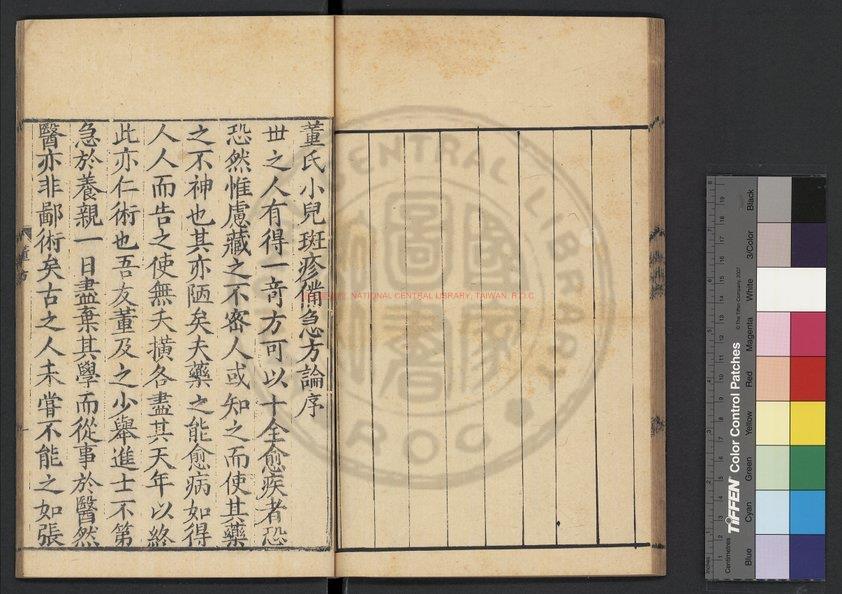 董氏小兒斑疹備急方論序
世之人有得一奇方可以十全愈疾者恐
恐然惟慮藏之不密人或知之而使其藥
之不神也其亦陋矣夫藥之能愈病如得
人人而告之使無夭橫各盡其天年以終
此亦仁術也吾友董及之少舉進士不第
急於養親一日盡棄其學而從事於醫然
醫亦非鄙術矣古之人未嘗不能之如張
NATIONAL CENTRAL LIBRARY, TAIWAN, R.O.C
CENTRAL LIBRARY
R.O.C
國家圖書
TIFFEN Color Control Patches
© The Tiffen Company, 2007
Centimetres
Blue
Cyan
Green
Yellow
Red
Magenta
White
3/Color
Black